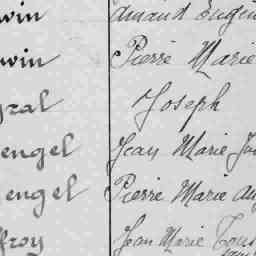 win Amand Eugèn
win Pierre Marie
gral Joseph
engel Jean Marie Jos
engel Pierre Marie Aug
froy Jean Marie Tous